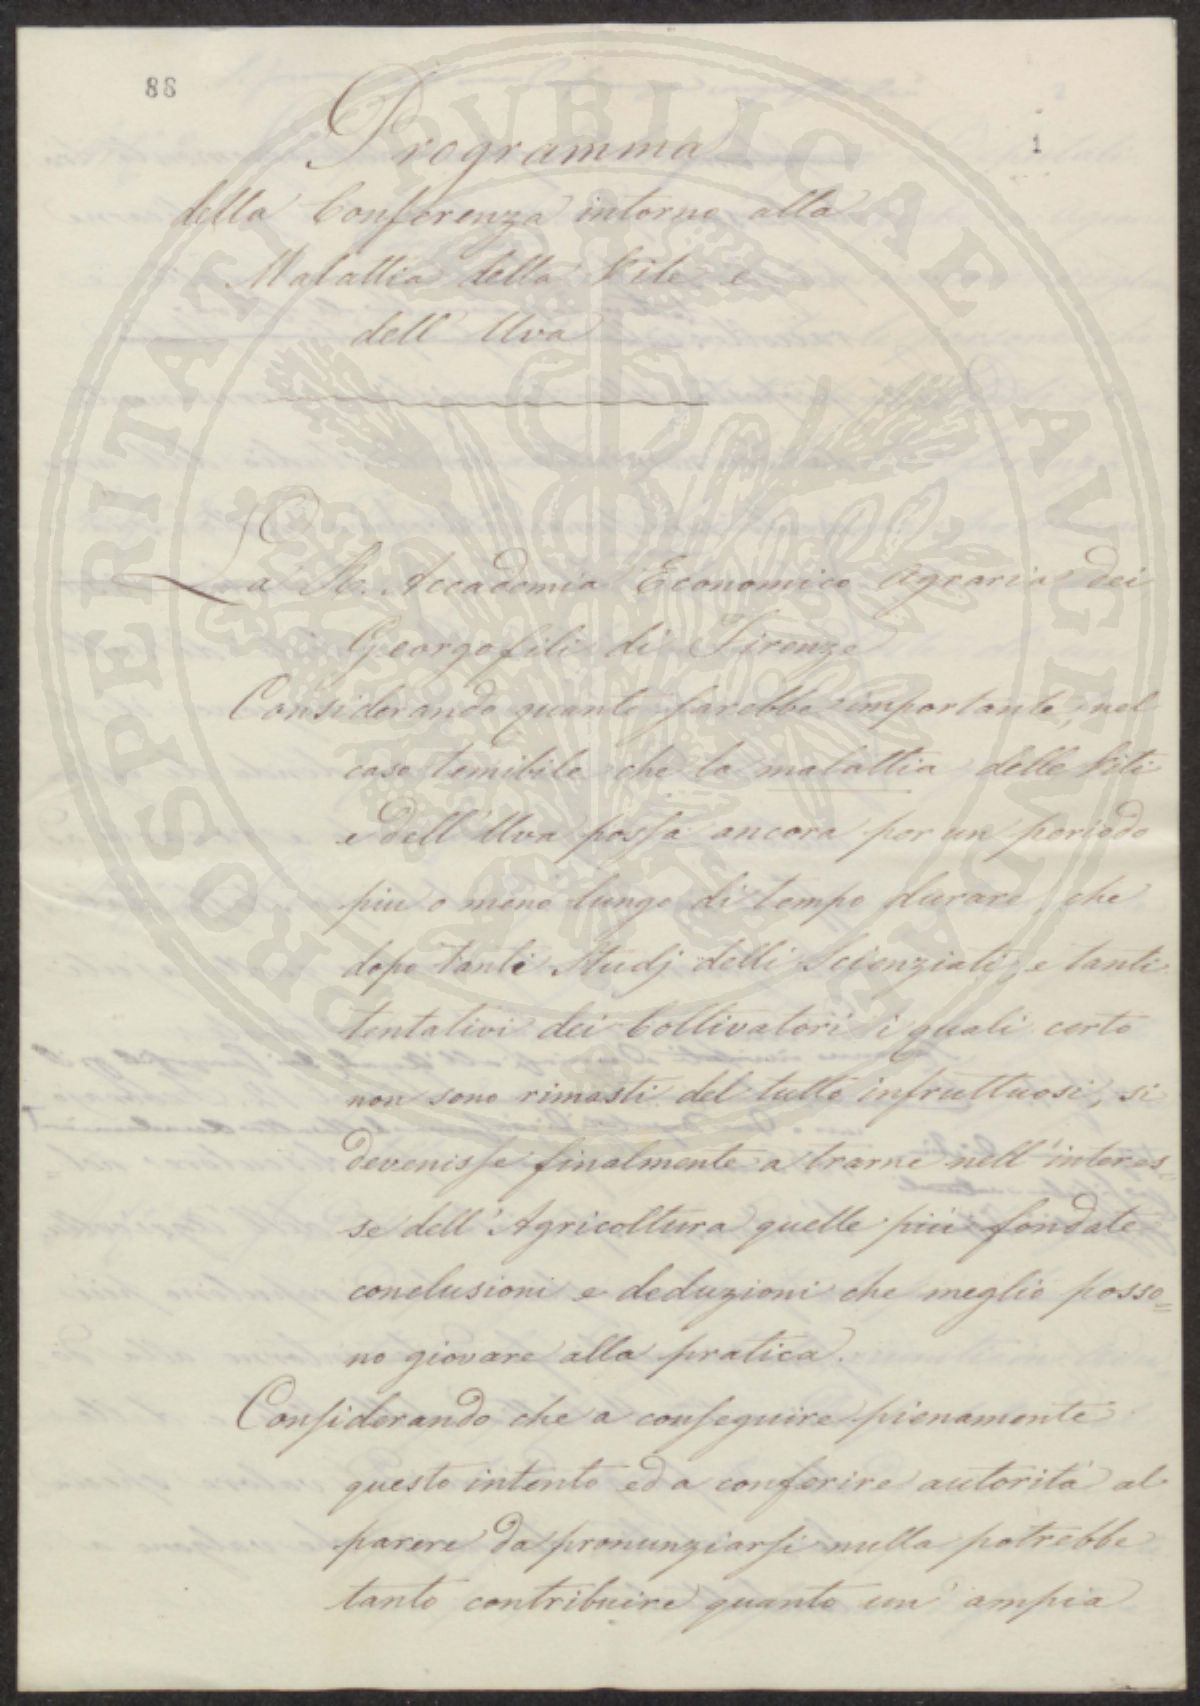 88
1
Programma
della Conferenza intorno alla
Malattia della Vite e
dell' Uva
La R. Accademia Economico Agraria dei
Georgofili di Firenze
Considerando quanto sarebbe importante, nel
caso temibile che la malattia delle Viti
e dell' Uva possa ancora per un periodo
piu o meno lungo di tempo durare, che
dopo tanti Studj delli Scienziati, e tanti
tentativi dei Coltivatori i quali certo
non sono rimasti del tutto infruttuosi, si
devenisse finalmente a trarne nell' interes=
se dell' Agricoltura quelle più fondate
conclusioni e deduzioni che meglio posso=
no giovare alla pratica.
Considerando che a conseguire pienamente
questo intento ed a conferire autorità al
parere da pronunziarsi nulla potrebbe
tanto contribuire quanto un' ampia
PROSPERITATI PVBLICAE AVGENDAE